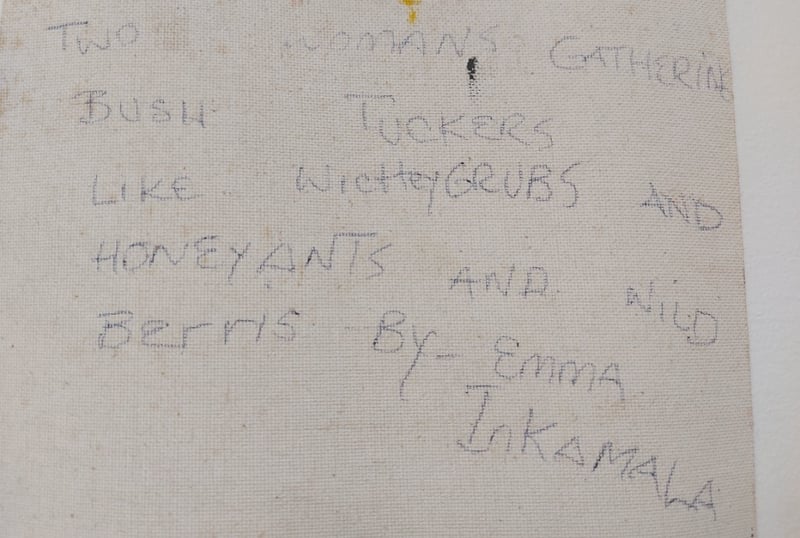 TWO WOMANS GATHERING
BUSH TUCKERS
LIKE WicHteyGRUBS AND
HONEYANTS AND WILD
Berris By- Emma
InKAMALA